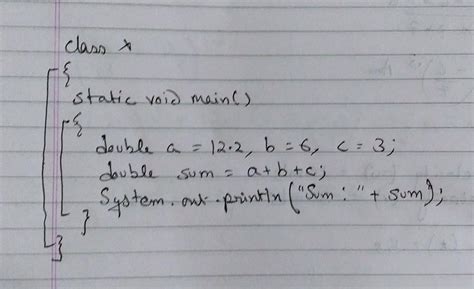 class x
{
static void main()
{
double a = 12.2, b = 6, c = 3;
double sum = a+b+c;
System.out.println("Sum : " + sum);
}
}